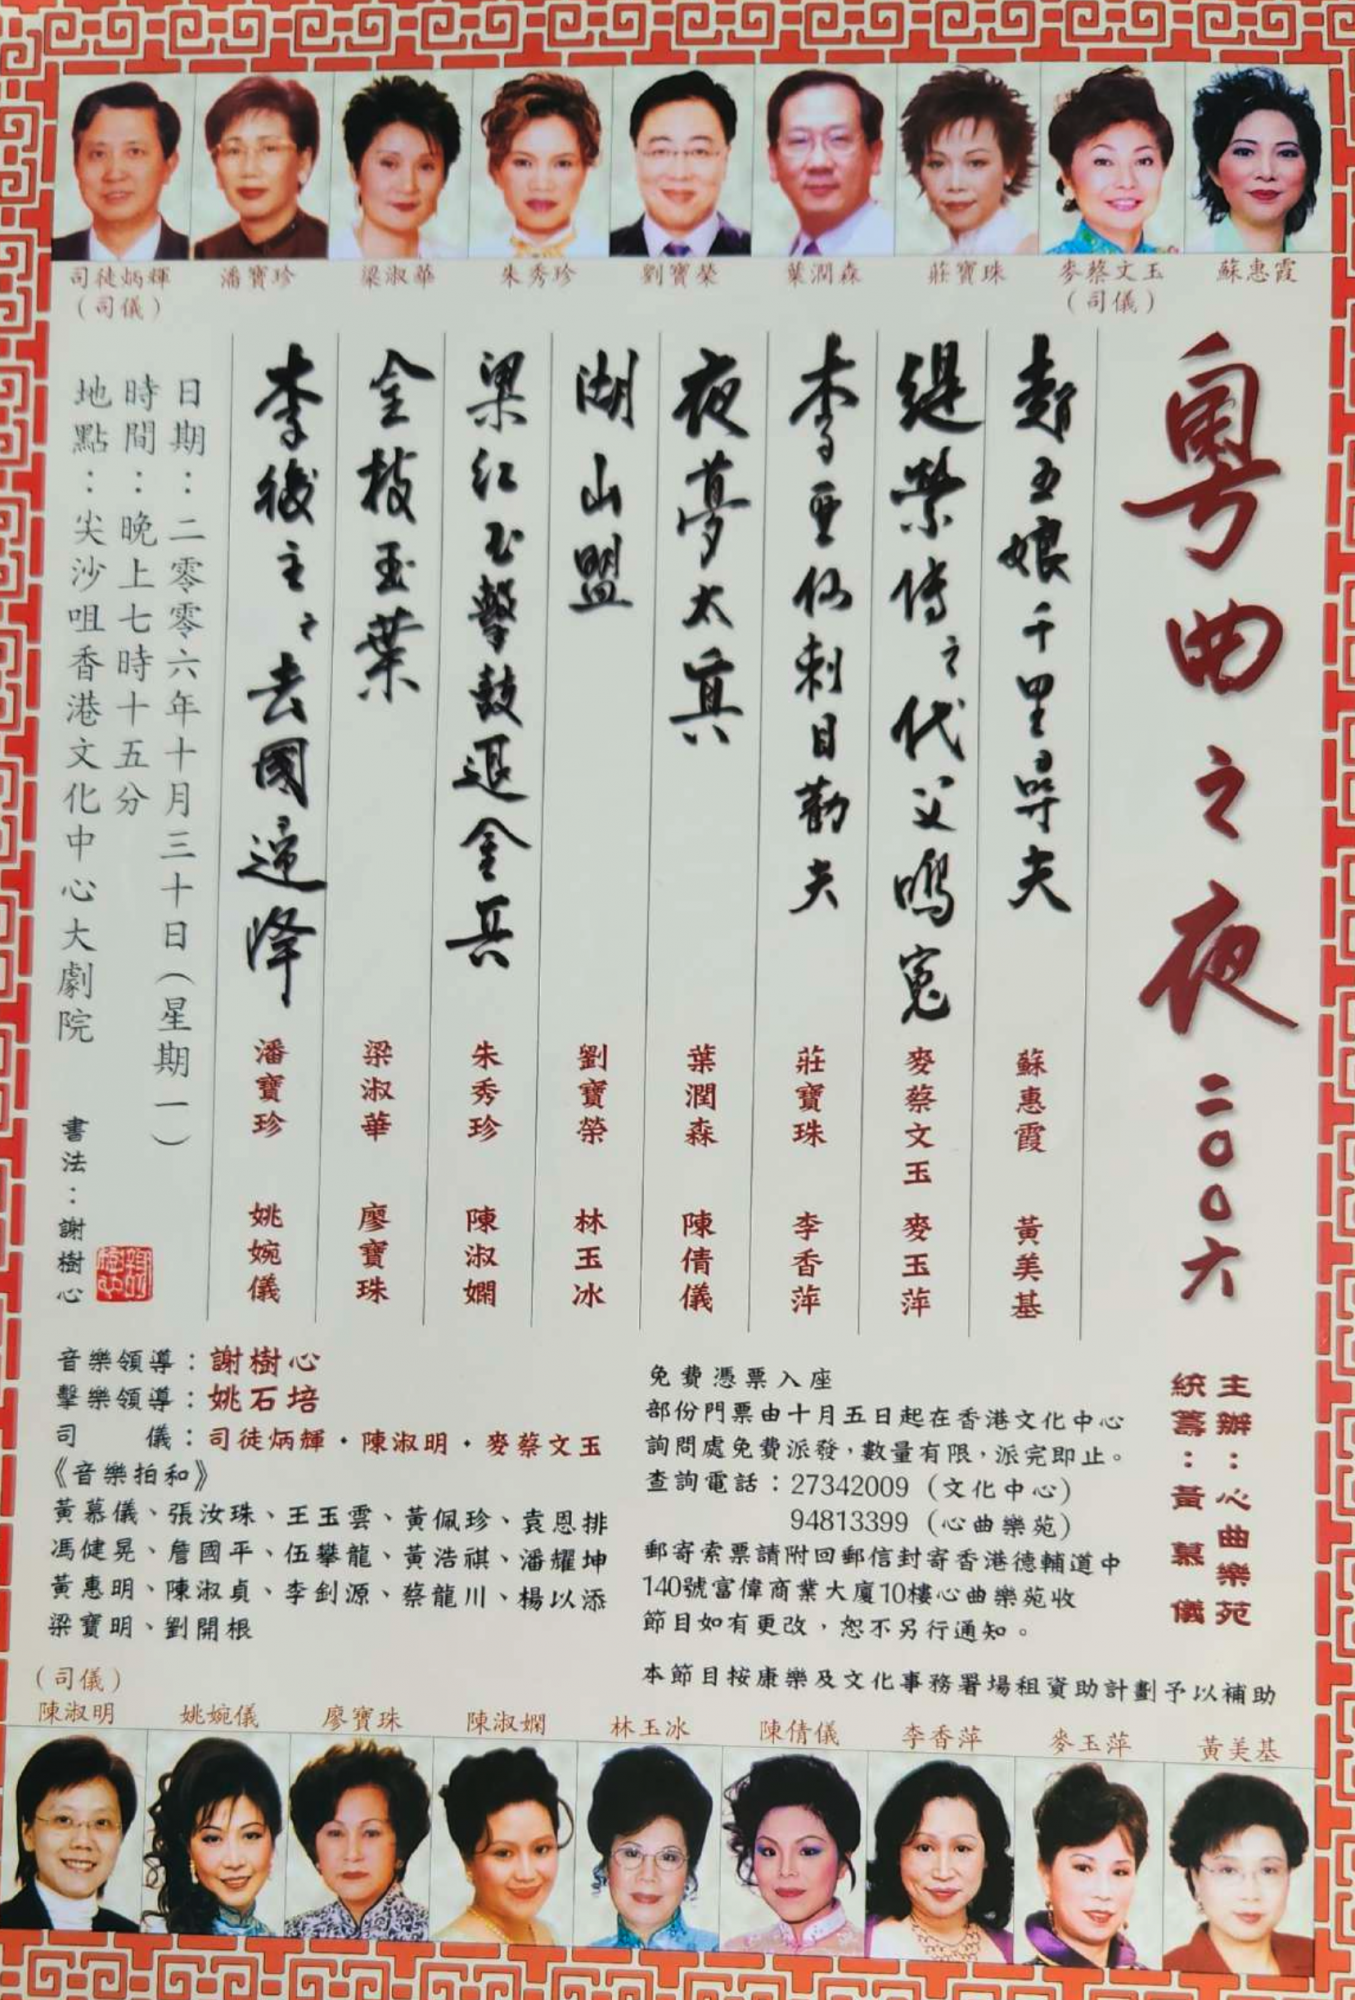 司徒炳輝
(司儀)
潘寶珍
梁淑華
朱秀珍
劉寶榮
葉潤森
莊寶珠
麥蔡文玉
(司儀)
蘇惠霞
粵曲之夜二〇〇六
趙五娘千里尋夫 蘇惠霞 黃美基
緹縈傳之代父鳴冤 麥蔡文玉 麥玉萍
李亞仙刺目勸夫 莊寶珠 李香萍
夜夢太真 葉潤森 陳倩儀
湖山盟 劉寶榮 林玉冰
梁紅玉擊鼓退金兵 朱秀珍 陳淑嫻
金枝玉葉 梁淑華 廖寶珠
李後主之去國歸降 潘寶珍 姚婉儀
日期：二零零六年十月三十日(星期一)
時間：晚上七時十五分
地點：尖沙咀香港文化中心大劇院
書法：謝樹心
音樂領導：謝樹心
擊樂領導：姚石培
司　　儀：司徒炳輝・陳淑明・麥蔡文玉
《音樂拍和》
黃慕儀、張汝珠、王玉雲、黃佩珍、袁恩排
馮健晃、詹國平、伍攀龍、黃浩祺、潘耀坤
黃惠明、陳淑貞、李釗源、蔡龍川、楊以添
梁寶明、劉開根
免費憑票入座
部份門票由十月五日起在香港文化中心
詢問處免費派發，數量有限，派完即止。
查詢電話：27342009 (文化中心)
94813399 (心曲樂苑)
郵寄索票請附回郵信封寄香港德輔道中
140號富偉商業大廈10樓心曲樂苑收
節目如有更改，恕不另行通知。
本節目按康樂及文化事務署場租資助計劃予以補助
主辦：心曲樂苑
統籌：黃慕儀
(司儀)
陳淑明
姚婉儀
廖寶珠
陳淑嫻
林玉冰
陳倩儀
李香萍
麥玉萍
黃美基